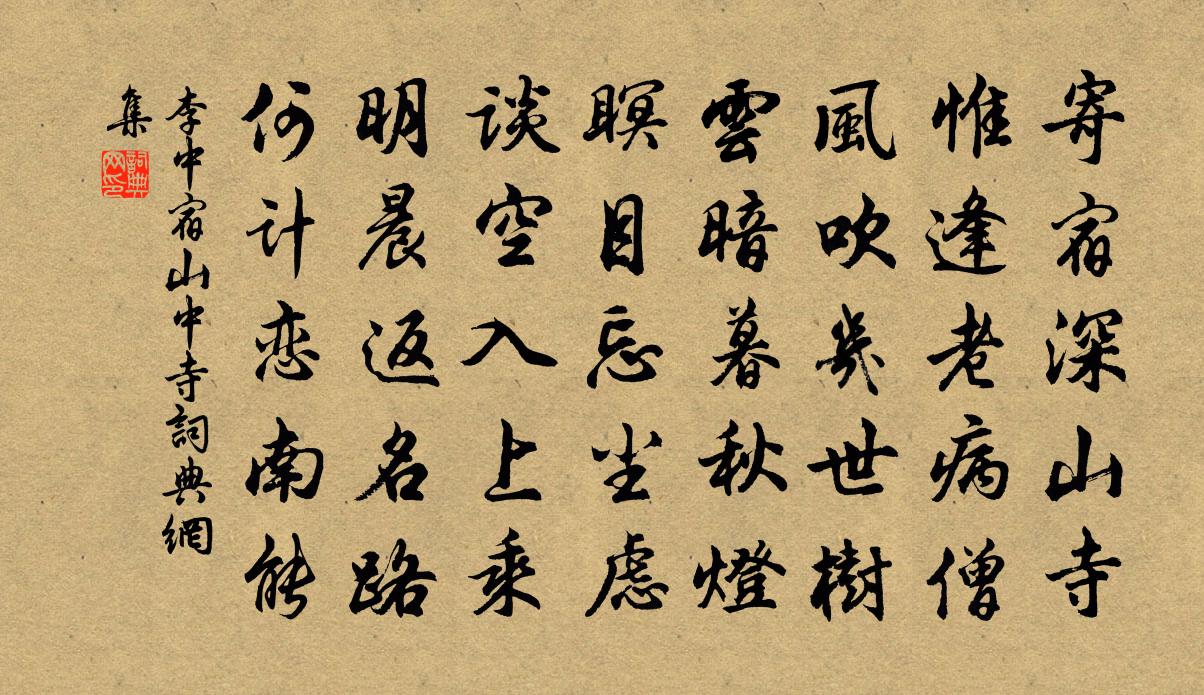 寄宿深山寺
惟逢老病僧
風吹幾世樹
雲暗暮秋燈
瞑目忘尘虑
谈空入上乘
明晨返名路
何计恋南能
李中宿山中寺詞典網
集
詞典
网印